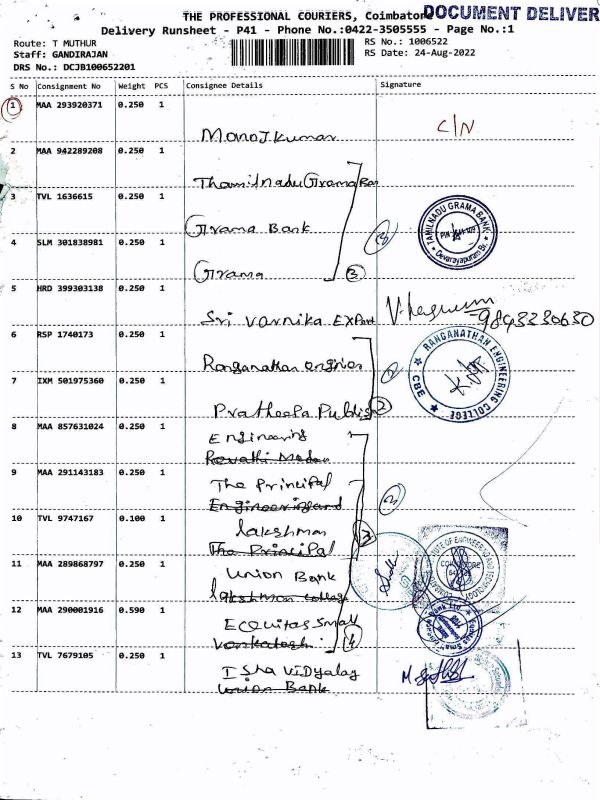 THE PROFESSIONAL COURIERS, Coimbatore
DOCUMENT DELIVER
Delivery Runsheet - P41 - Phone No.:0422-3505555 - Page No.:1
Route: T MUTHUR
RS No.: 1006522
Staff: GANDIRAJAN
RS Date: 24-Aug-2022
DRS No.: DCJB100652201
S No Consignment No Weight PCS Consignee Details Signature
1 MAA 293920371 0.250 1
Manoj Kumar C/N
2 MAA 942289208 0.250 1
Thamilnadu Grama Ban
3 TVL 1636615 0.250 1
Grama Bank
TAMILNADU GRAMA BANK
Devarayapuram Br.
4 SLM 301838981 0.250 1
Grama 3
5 HRD 399303138 0.250 1
Sri Varnika Export
9843230630
6 RSP 1740173 0.250 1
Ranganathan engines
RANGANATHAN ENGINEERING COLLEGE
CBE
7 IXM 501975360 0.250 1
Pratheepa Publis 2
8 MAA 857631024 0.250 1
Engineering
Revathi Medan
9 MAA 291143183 0.250 1
The Principal
Engineering and
10 TVL 9747167 0.100 1
lakshman
The Principal
11 MAA 289868797 0.250 1
Union Bank
lakshman college
12 MAA 290001916 0.590 1
Equitas Small
Venkatesh
13 TVL 7679105 0.250 1
Isha Vidyalay
Union Bank